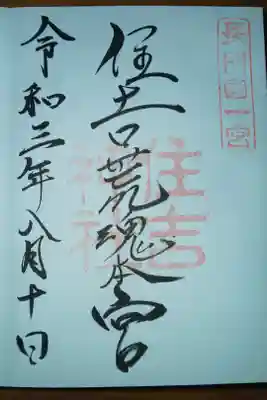 長門國一宮
住吉荒魂本宮
住吉神社
令和三年八月十日